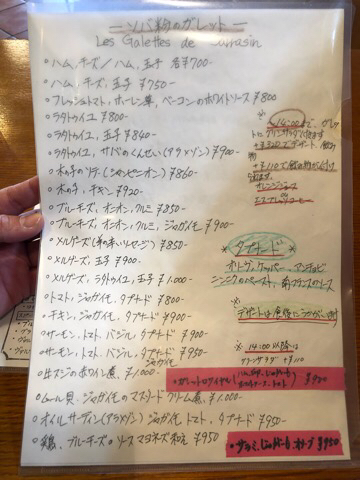 ーソバ粉のガレットー
Les Galettes de Sarrasin
・ハム,チーズ/ハム,玉子 各¥700-
・ハム,チーズ,玉子 ¥750-
・フレッシュトマト,ホーレン草,ベーコンのホワイトソース ¥800
・ラタトゥイユ ¥800-
・ラタトゥイユ,玉子 ¥840-
・ラタトゥイユ,サバのくんせい(アラメゾン) ¥900-
・木の子のソテ(シャンピニオン) ¥860-
・木の子,チキン ¥920-
・ブルーチーズ,オニオン,クルミ ¥850-
・ブルーチーズ,オニオン,クルミ,ジャガイモ ¥900-
・メルゲーズ(羊の辛いソセージ) ¥850-
・メルゲーズ,玉子 ¥900-
・メルゲーズ,ラタトゥイユ,玉子 ¥1.000-
・トマト,ジャガイモ,タプナード ¥800-
・チキン,ジャガイモ,タプナード ¥900-
・サーモン,トマト,バジル,タプナード ¥900-
・サーモン,トマト,バジル,タプナード ¥950-
ジャガイモ
・牛スジのホワイト煮 ¥1.000-
・ムール貝,ジャガイモのマスタードクリーム煮,¥1.000-
・オイルサーディン(アラメゾン)ジャガイモ,トマト,タプナード ¥950-
・鶏,ブルーチーズのソースマヨネーズ和え ¥950
※
14:00まで,
グリーンサラダ付きます
+¥320でデザート,
+¥110で
オレンジジュース
エスプレッソコーヒー
タプナード
オリーヴ,ケッパー,アンチョビ
ニンニクのペースト,南フランスのソース
デザートは食後にうかがいます
※14:00以降は
グリーンサラダ +¥110
・ガレットロワイヤル ¥950
・サラミ, ¥950